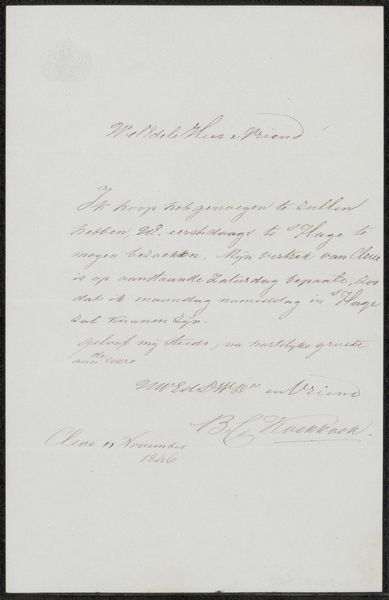 WelEdele Heer & Vriend!
Ik hoop het genoegen te zullen
hebben, UE. eerstdaags te s'Hage te
mogen bezoeken. Mijn vertrek van Cleve
is op aanstaande Zaturdag bepaalt, zoo
dat ik maandag namiddag in s'Hage
zal kunnen zijn.
Geloof mij steeds, na hartelijke groete
aan de uwe
UWEd DW Dr en Vriend
B. C. Koekkoek
Cleve 11 November
1846